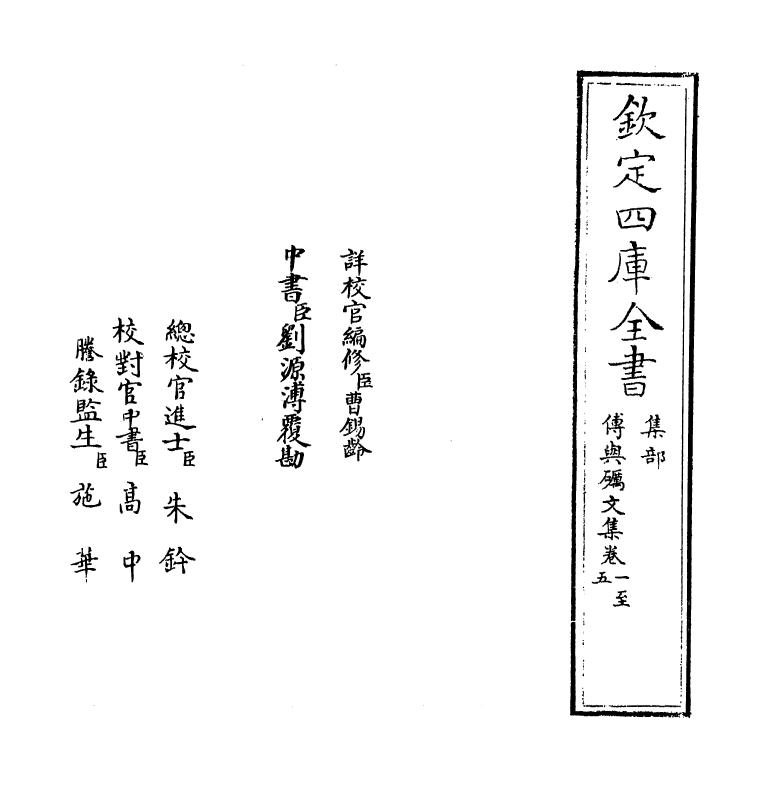 欽定四庫全書
集部
傅與礪文集卷一至五
詳校官編修臣曹錫齡
中書臣劉源溥覆勘
總校官進士臣朱鈐
校對官中書臣高中
謄錄監生臣施華